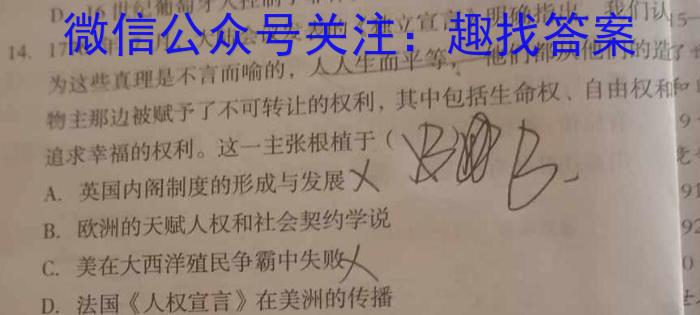 D. 16世纪葡萄牙人控制了
微信公众号关注：趣找答案
14. 17 年 月 大 发 的《独立宣言》明确指出，我们认
为这些真理是不言而喻的，人人生而平等，他们都从他们的造
物主那边被赋予了不可转让的权利，其中包括生命权、自由权和
追求幸福的权利。这一主张根植于（ B B.
A. 英国内阁制度的形成与发展
B. 欧洲的天赋人权和社会契约学说
C. 美在大西洋殖民争霸中失败
D. 法国《人权宣言》在美洲的传播
15
9
91
92